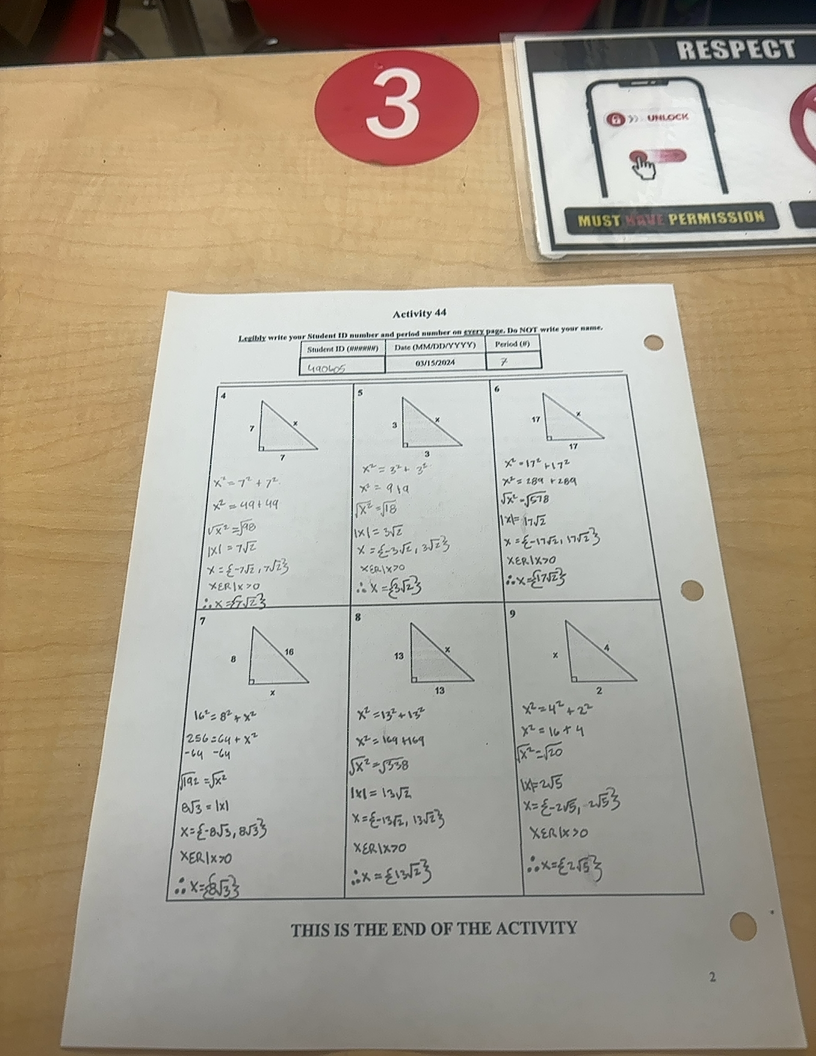 3
RESPECT
UNLOCK
MUST HAVE PERMISSION
Activity 44
Legibly write your Student ID number and period number on every page. Do NOT write your name.
Student ID (######) Date (MM/DD/YYYY) Period (#)
490605 03/15/2024 7
4
7
x
7
x² = 7² + 7²
x² = 49 + 49
√x² = √98
|x| = 7√2
x = {-7√2, 7√2}
x∈R|x>0
∴ x = {7√2}
5
3
x
3
x² = 3² + 3²
x² = 9+9
√x² = √18
|x| = 3√2
x = {-3√2, 3√2}
x∈R|x>0
∴ x = {3√2}
6
17
x
17
x² = 17² + 17²
x² = 289 + 289
√x² = √578
|x| = 17√2
x = {-17√2, 17√2}
x∈R|x>0
∴ x = {17√2}
7
8
16
x
16² = 8² + x²
256 = 64 + x²
-64 -64
√192 = √x²
8√3 = |x|
x = {-8√3, 8√3}
x∈R|x>0
∴ x = {8√3}
8
13
x
13
x² = 13² + 13²
x² = 169 + 169
√x² = √338
|x| = 13√2
x = {-13√2, 13√2}
x∈R|x>0
∴ x = {13√2}
9
x
4
2
x² = 4² + 2²
x² = 16 + 4
√x² = √20
|x| = 2√5
x = {-2√5, 2√5}
x∈R|x>0
∴ x = {2√5}
THIS IS THE END OF THE ACTIVITY
2